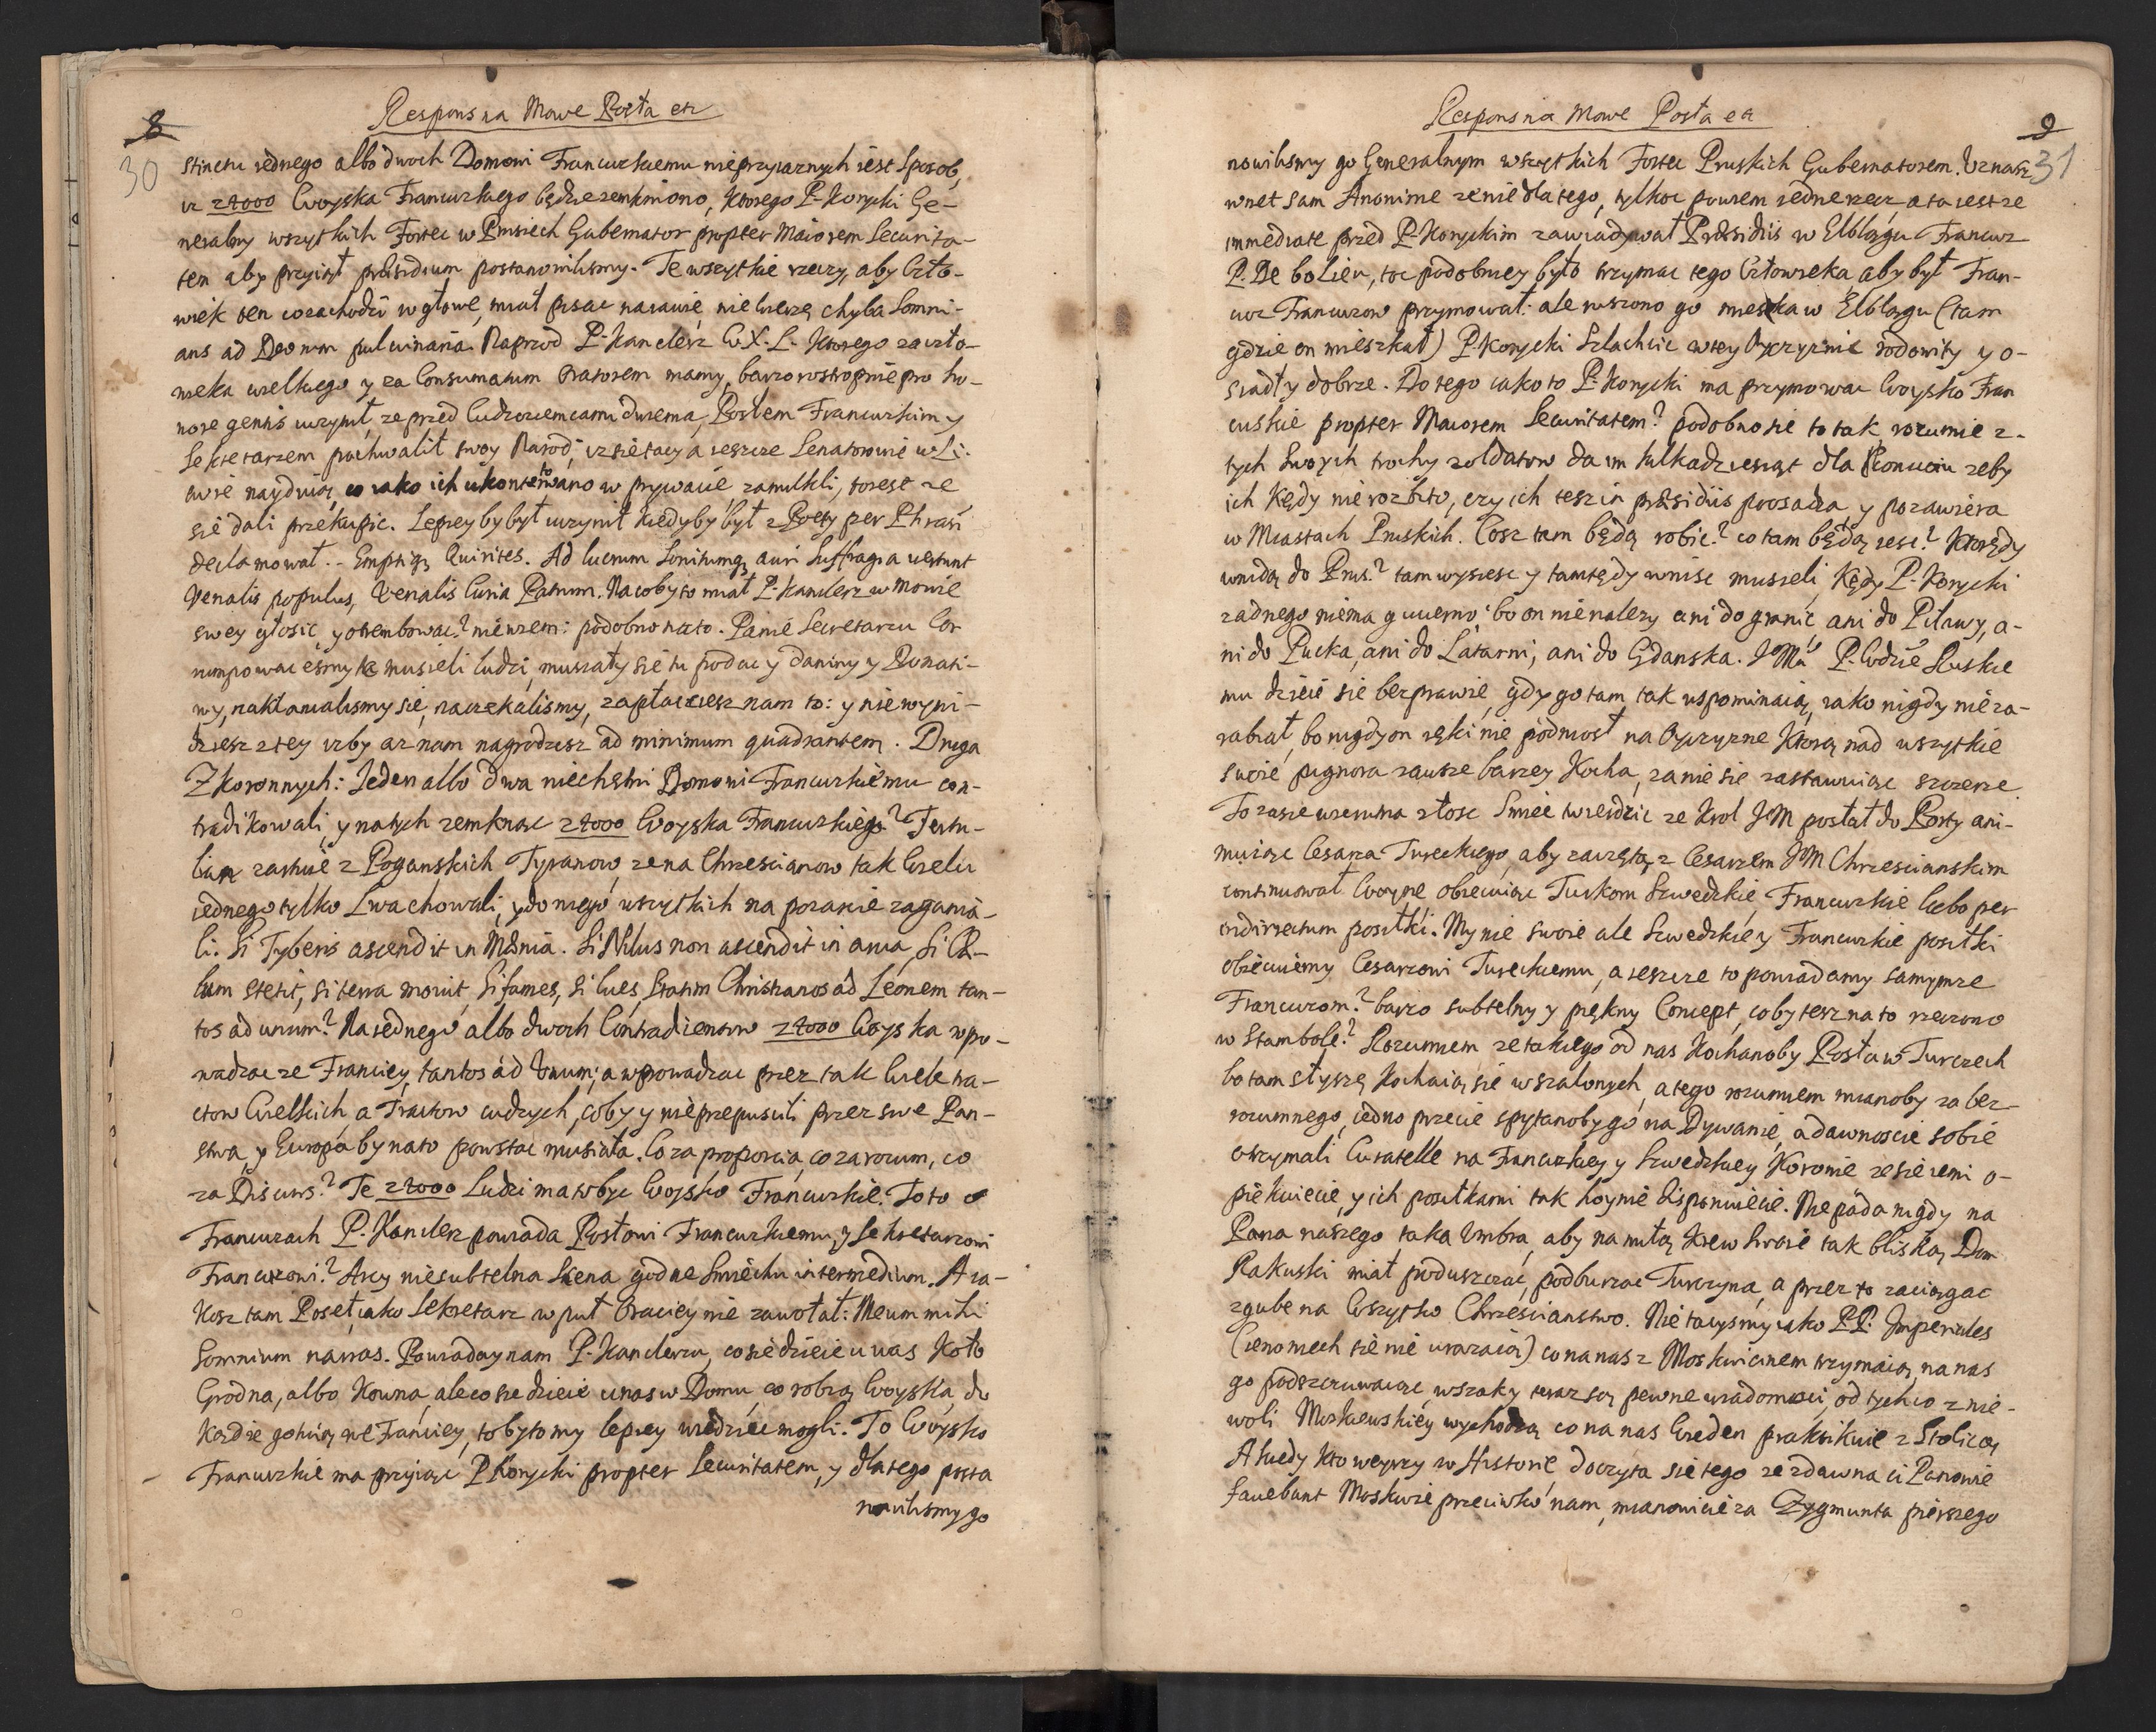 8
Respons na Mowe Posła etc
30
stinctu iednego albo dwoch Domowi Francuzkiemu nieprzyiaznych iest sposob,
iz 24000 Woyska Francuzkiego będzie zemkniono, ktorego P. Korycki Ge-
neralny wszytkich Fortec w Prusiech Gubernator propter Maiorem Securita-
tem aby przyiął præsidium postanowilismy. Te wszytkie rzeczy, aby Czło-
wiek ten co zachodzi w głowę, miał pisac na iawie nie wierzę chyba Somni-
ans ad Deorum pulvinaria. Naprzod P. Kanclerz W.X.L. ktorego za czło-
wieka wielkiego y za Consumatum Oratorem mamy, barzo rostropnie pro ho-
nore gentis uczynił, ze przed Cudzoziemcami dwiema, Posłem Francuzkim y
Sekretarzem pochwalił swoy Narod, iz sie tacy a ieszcze Senatorowie w Li-
twie nayduią, co iako ich ukontentowano w prywacie, zamilkli, to iest ze
się dali przekupic. Lepiey by był uczynił kiedyby był z Poety per Phrasin
declamował. - Emptiq, Quirites. Ad lucrum Sonitumq, auri Suffragia vertunt
Venalis populus, Venalis Curia Patrum. Na coby to miał P. Kanclerz w Mowie
swey głosic, y otrembowac? nie wiem: podobno na to. Panie Secretarzu Cor
rumpowac esmy musieli ludzi, musiały się tu podac y daniny y Donati-
wy, nakłanialismy się, naczekalismy, zapłacisz nam to: y nie wyni-
dziesz z tey izby az nam nagrodzisz ad minimum quadrantem. Druga
Z koronnych: Ieden albo dwa niechętni Domowi Francuzkiemu con-
tradikowali, y na tych zemknąc 24000 Woyska Francuzkiego? Tertu-
lian zartuie z Poganskich Tyranow, ze na Chrzescianow tak wielu
iednego tylko Lwa chowali, y do niego wszytkich na pozarcie zagania-
li. Si Tyberis ascendit in Mœnia. Si Nilus non ascendit in arva, si Cœ-
lum stetit, si terra movit, si fames, si lues, Statim Christianos ad Leonem tan-
tos ad unum? Na iednego albo dwoch Contradicentow 24000 Woyska wpro-
wadzac ze Franciey, tantos ad Unum; a wprowadzac przez tak wiele tra-
ctow wielkich, a Tractow cudzych, coby y nie przepuscili przez swe Pan-
stwa, y Europa by na to powstac musiała. Co za proporcia, co za rozum, co
za Discurs? Te 24000 Ludzi ma to byc Woysko Francuzkie. To to o
Francuzach P. Kanclerz powiada Posłowi Francuzkiemu, y Sekretarzowi
Francuzowi? Arcy niesubtelna Scena godne smiechu intermedium. A ia-
kosz tam Poseł, iako Sekretarz w puł Oraciey nie zawołał: Meum mihi
Somnium narras. Powiaday nam P. Kanclerzu, co sie dzieie u was koło
Grodna, albo Kowna, ale co sie dzieie u nas w Domu, co robią Woyska, do
kądze gotuią we Franciey, to by to my lepiey wiedziec mogli. To Woysko
Francuzkie ma przyiąc P Korycki propter Securitatem, y dla tego posta
nowilismy go
Respons na Mowe Posła etc
9
31
nowilismy go Generalnym wszytkich Fortec Pruskich Gubernatorem. Uznasz
wnet sam Anonime ze nie dla tego, tylko powiem iedne rzecz, a ta iest ze
immediate przed P. Koryckim zawiadywał Præsidiis w Elblągu Francuz
P. De boLieu, toc podobniey było trzymac tego Człowieka aby był Fran-
cuz Francuzow przymował: ale ruszono go mieszka w Elblągu (tam
gdzie on mieszkał) P. Korycki Szlachcic w tey Oyczyznie rodowity y o-
siadły dobrze. Do tego iako to P. Korycki ma przymowac Woysko Fran
cuskie propter Maiorem Securitatem? podobno sie to tak rozumie z
tych swoych trochy zołdatow da im kilkadziesiąt dla Konwoiu zeby
ich kędy nie rozbito, czy ich tesz in præsidiis poosadza, y pozawiera
w Miastach Pruskich. Cosz tam będą robic? co tam będą iesc? Ktorędy
wnidą do Prus? tam wysiesc y tamtędy wnisc musieli, kędy P. Korycki
zadnego niema guuerno, bo on nienalezy ani do granic ani do Pilawy, a-
ni do Pucka, ani do Latarni, ani do Gdanska. I Mci P. Wdzie Ruskie
mu dzieie sie bezprawie, gdy go tam tak wspominaią, iako nigdy nie za-
rabiał, bo nigdy on ręki nie podniosł na Oyczyzne ktorą nad wszytkie
swoie pignora zawsze barzey kocha, za nie sie zastawuiąc szczerze.
To zasie wierutna złosc smiec twierdzic ze Krol JM posłał do Porty ani-
muiąc Cesarza Tureckiego, aby zaczętą z Cesarzem JM Chrzescianskim
continuował Woyne obiecuiąc Turkom Szwedzkie, Francuzkie lubo per
indirectum posiłki. My nie swoie ale Szwedzkie y Francuzkie posiłki
obiecuiemy Cesarzowi Tureckiemu, a ieszcze to powiadamy samymze
Francuzom? barzo subtelny y piękny Concept, coby tesz na to rzeczono
w Stambole? Rozumiem ze takiego od nas kochanoby Posła w Turczech
bo tam słyszę kochaią się w szalonych, a tego rozumiem mianoby za bez-
rozumnego, iedno przecie spytanoby go na Dywanie, a dawnoscie sobie
otrzymali Curatelle na Francuzkiey y Szwedzkiey Koronie ze sie iemi o-
piekuiecie, y ich posiłkami tak hoynie disponuiecie. Nie pada nigdy na
Pana naszego taka Umbra, aby na miłą krew swoie tak bliską Dom
Rakuski miał poduszczac, podburzac Turczyna, a przez to zaciągac
zgube na Wszytko Chrzescianstwo. Nie tacysmy iako PP. Imperiales
(ieno niech sie nie urazaią) co na nas z Moskwicinem trzymaią, na nas
go podszczuwaiąc, wszaky teraz są pewne wiadomosci, od tych co z nie-
woli Moskiewskiey wychodzą co na nas Wieden praktikuie z Stolicą
A kiedy kto weyrzy w Historie doczyta sie tego ze zdawna ci Panowie
favebant Moskwie przeciwko nam, mianowicie za Zygmunta pierszego